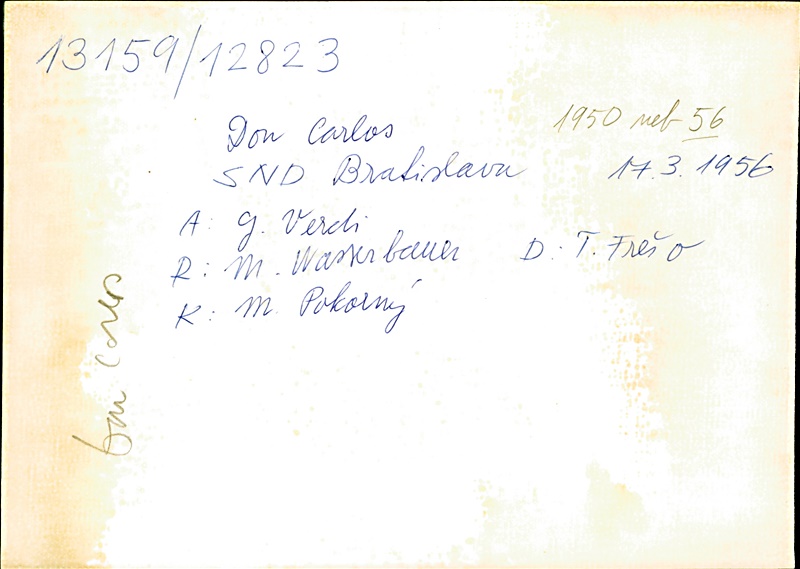 13159/12823
1950 neb 56
Don Carlos
SND Bratislava 17.3.1956
A: G. Verdi
R: M. Wasserbauer D: T. Frešo
K: M. Pokorný
Don Carlos